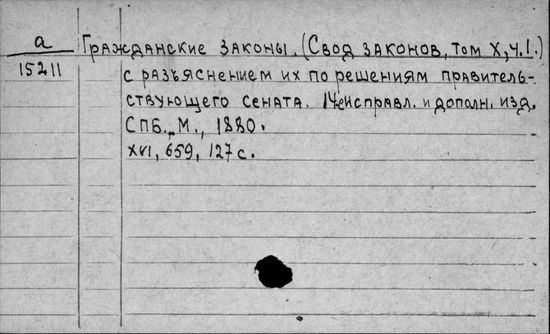 а Гражданские законы. (Свод законов, том X, ч.I.)
15211 с разъяснением их по решениям правитель-
ствующего сената. 14е исправл. и дополн. изд.
СПБ.-М., 1880.
XVI, 659, 127 с.